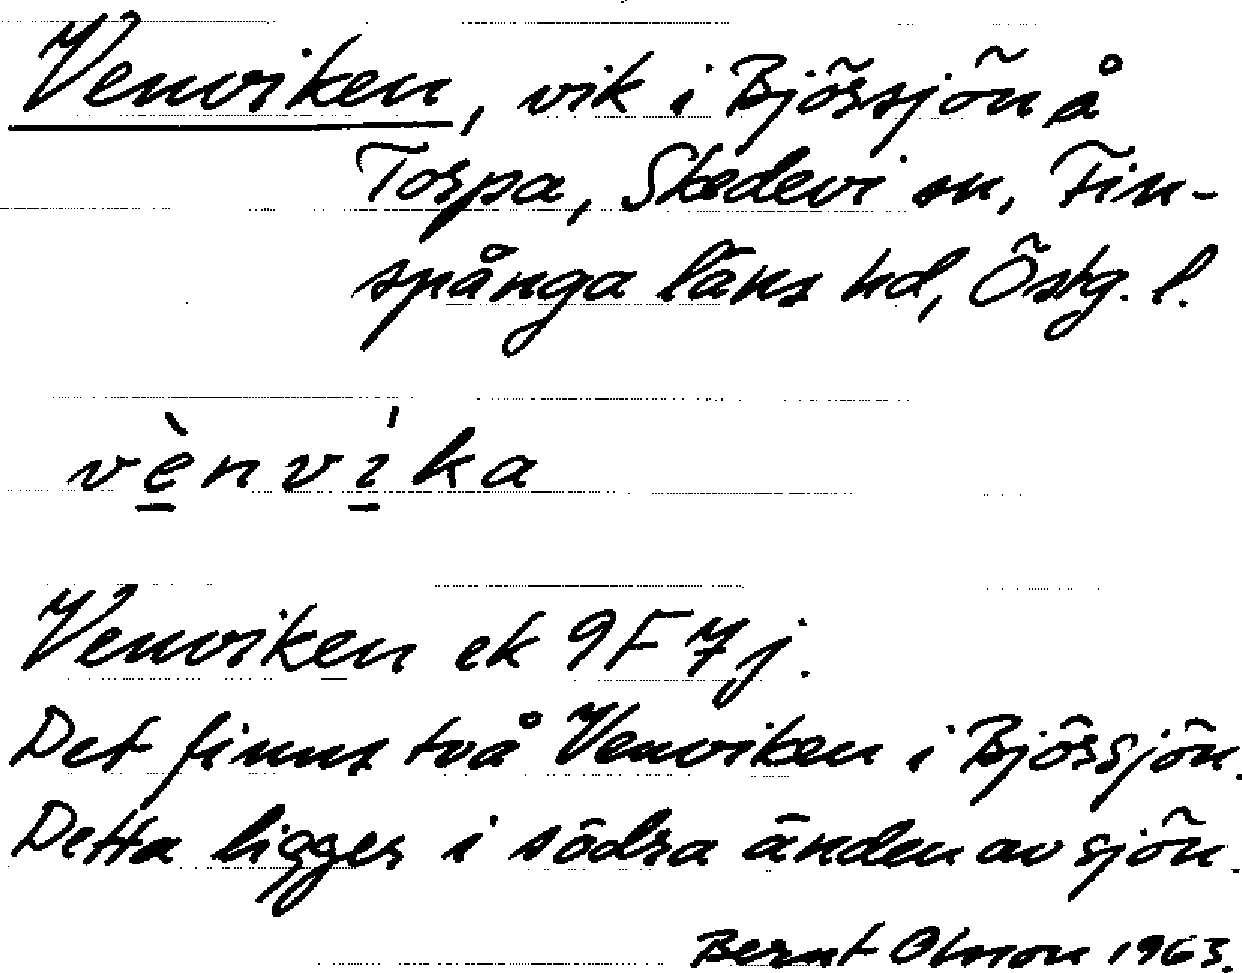 Venviken, vik i Björsjön å
Torpa, Skedevi sn, Fin-
spånga läns hd, Östg. l.
vènvíka
Venviken ek 9F7j.
Det finns två Venviken i Björsjön.
Detta ligger i södra änden av sjön.
Bernt Olsson 1963.